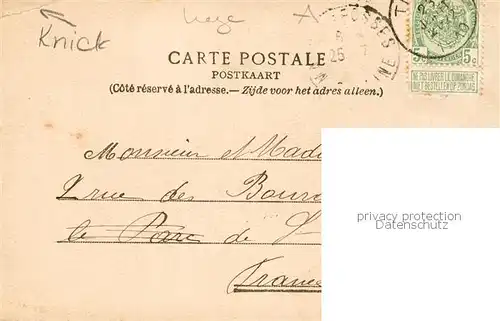 Knick
CARTE POSTALE
POSTKAART
(Côté réservé à l'adresse.—Zijde voor het adres alleen.)
5c 5c
NE PAS LIVRER LE DIMANCHE
NIET BESTELLEN OP ZONDAG
25
Monsieur & Mada
rue des
le Parc de S
France
privacy protection
Datenschutz